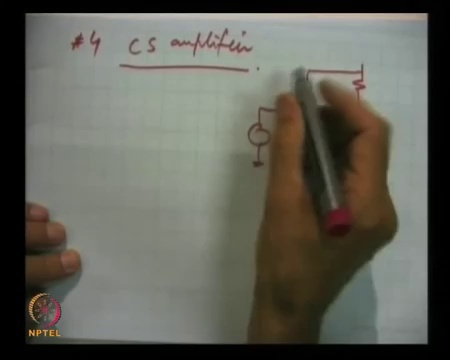 #4 CS amplifier
NPTEL